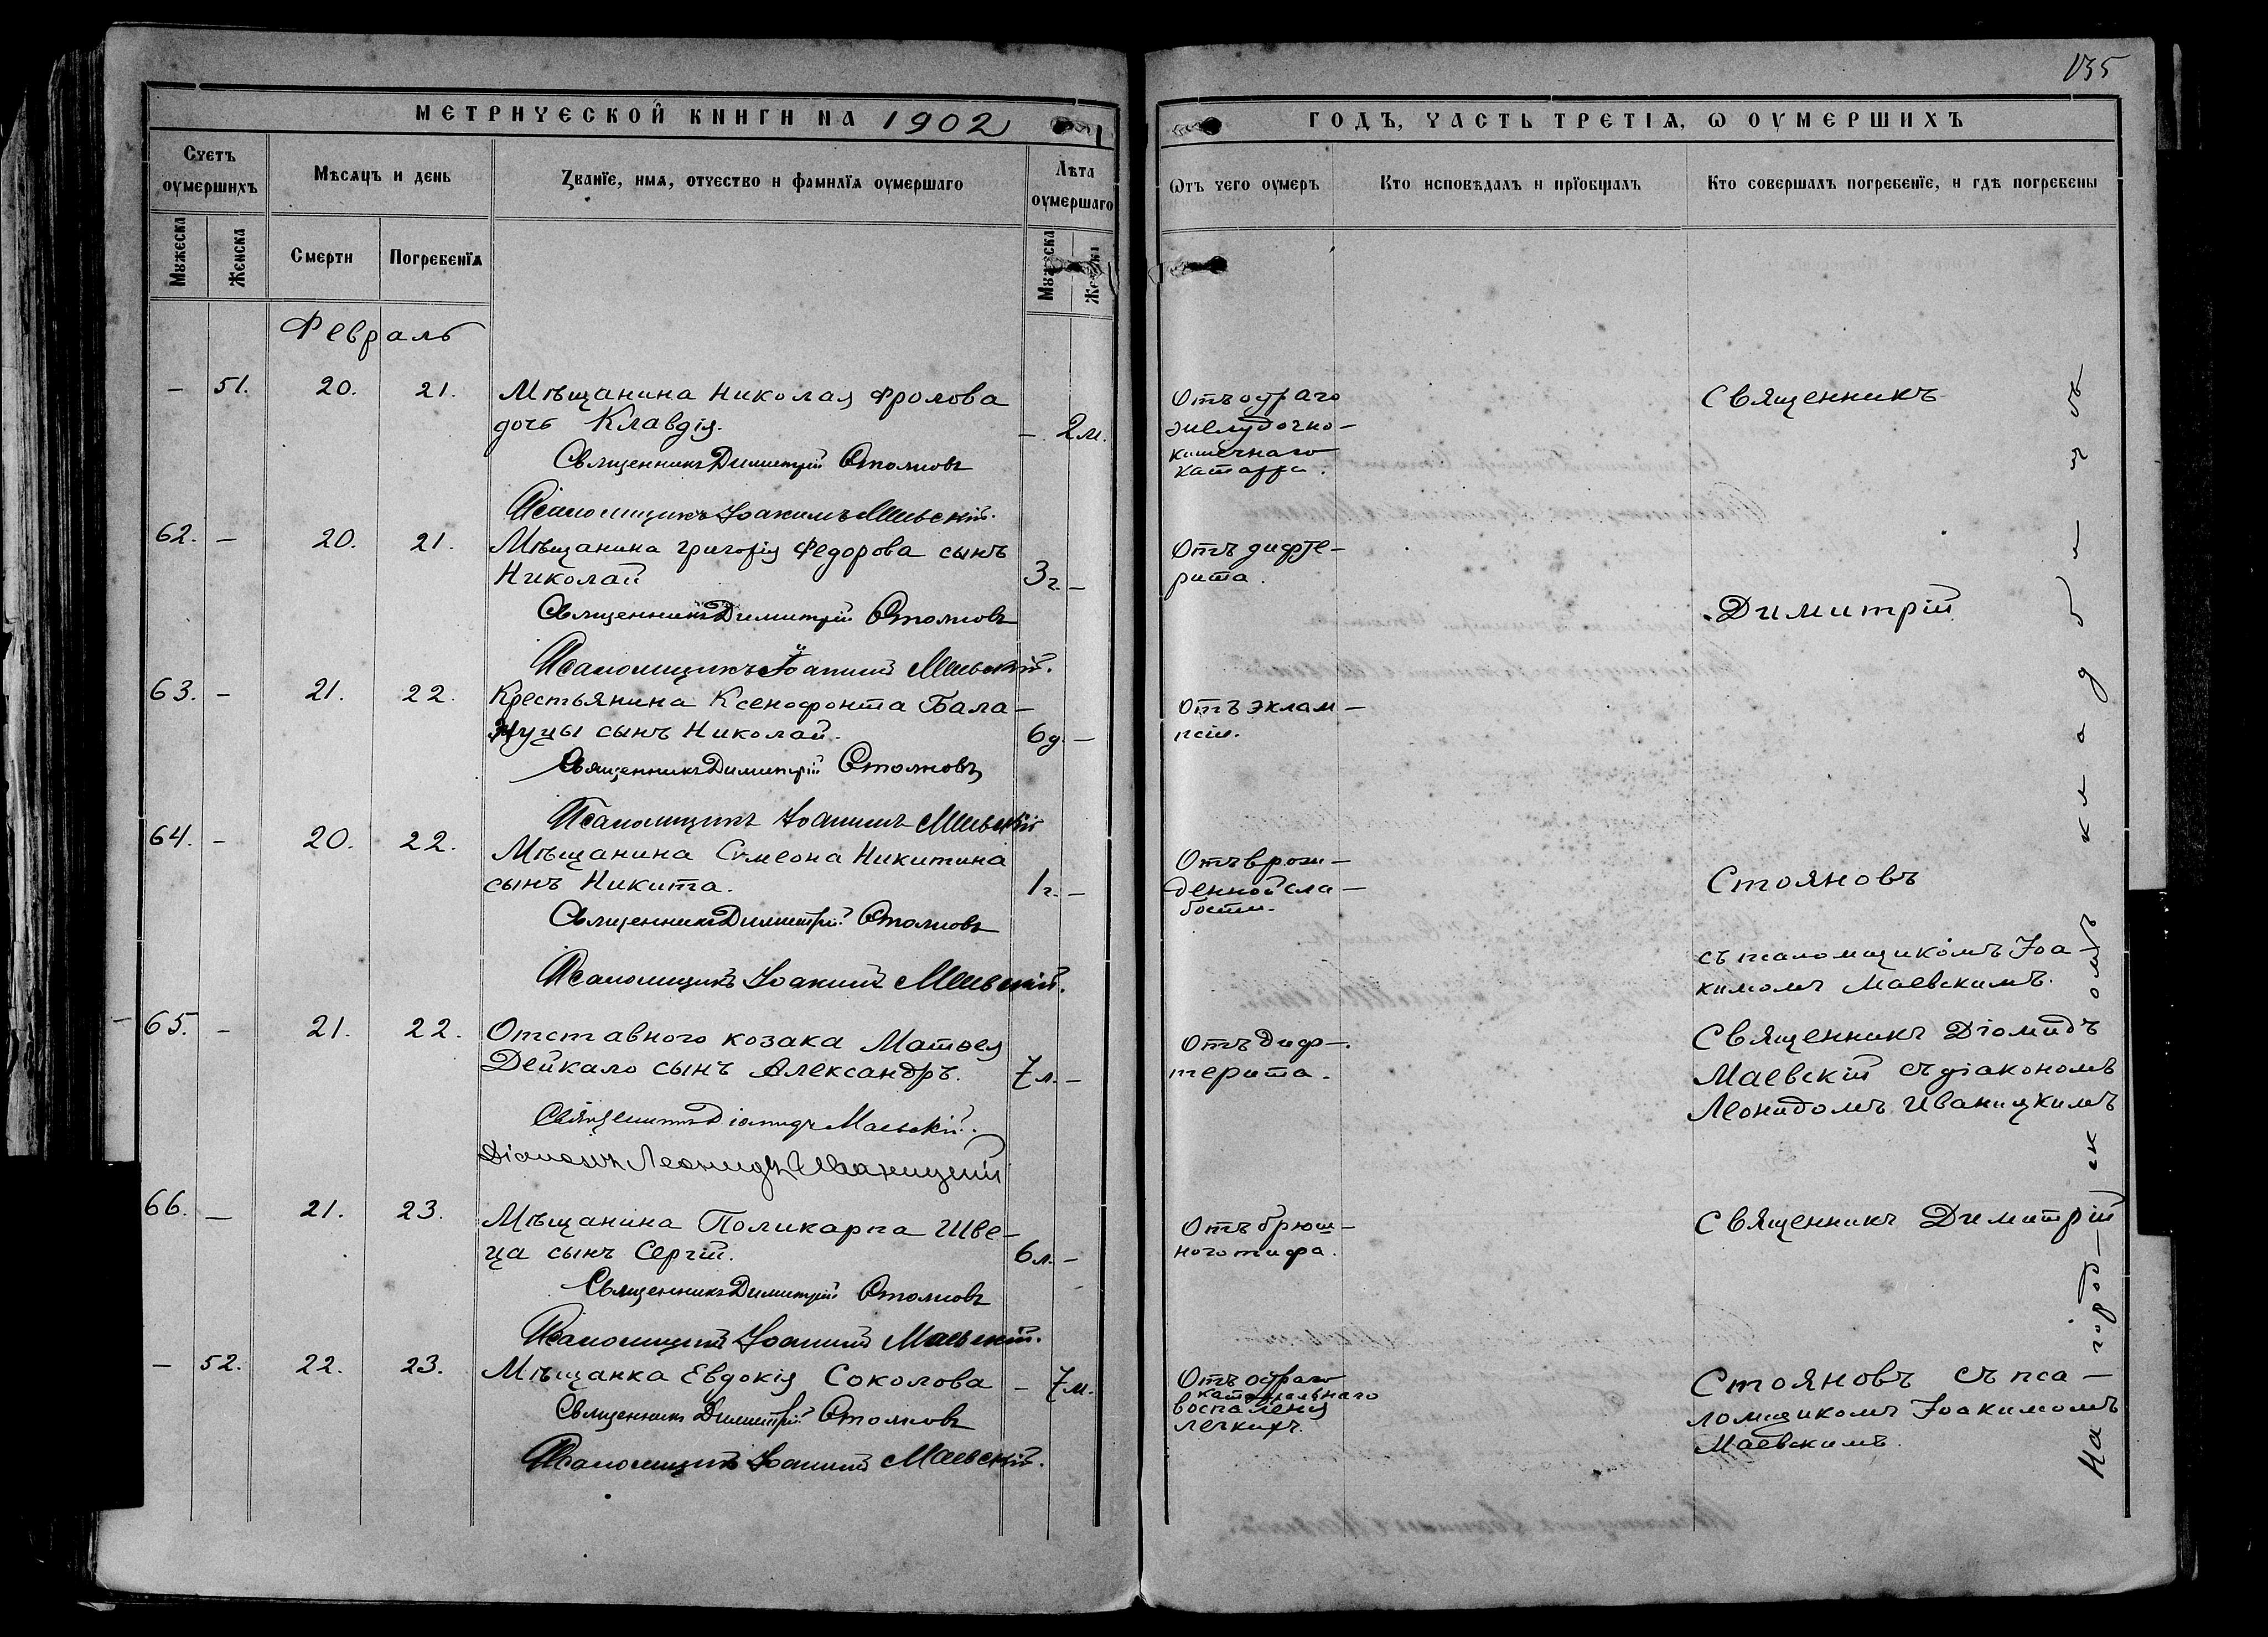 135
МЕТРИЧЕСКОЙ КНИГИ НА 1902
ГОДЪ, ЧАСТЬ ТРЕТІѦ, Ѡ ОУМЕРШИХЪ
Счетъ оумершихъ
Мѣсяцъ и день
Званїе, имѧ, отчество и фамилїѧ оумершаго
Лѣта оумершаго
Ѿтъ чего оумеръ
Кто исповѣдалъ и прїобщалъ
Кто совершалъ погребенїе, и гдѣ погребены
Мужеска
Женска
Смерти
Погребенїѧ
Мужеска
Женска
Февраль
– 51. 20. 21. Мѣщанина Николая Фролова
дочь Клавдія. – 2 м.
Священникъ Димитрій Стояновъ
Псаломщикъ Іоакимъ Маевскій.
Отъ остраго
желудочно-
кишечнаго
катарра.
Священникъ
62. – 20. 21. Мѣщанина Григорія Федорова сынъ
Николай 3 г. –
Священникъ Димитрій Стояновъ
Псаломщикъ Іоакимъ Маевскій.
Отъ дифте-
рита.
Димитрій
63. – 21. 22. Крестьянина Ксенофонта Бала-
нуцы сынъ Николай. 6 д. –
Священникъ Димитрій Стояновъ
Псаломщикъ Іоакимъ Маевскій
Отъ эклам-
псіи.
64. – 20. 22. Мѣщанина Симеона Никитина
сынъ Никита. 1 г. –
Священникъ Димитрій Стояновъ
Псаломщикъ Іоакимъ Маевскій.
Отъ врож-
денной сла-
бости.
Стояновъ
съ псаломщикомъ Іоа-
кимомъ Маевскимъ.
65. – 21. 22. Отставного козака Матѳея
Дейкало сынъ Александръ. 7 л. –
Священникъ Діомидъ Маевскій.
Діаконъ Леонидъ Иваницкій
Отъ диф-
терита.
Священникъ Діомидъ
Маевскій съ діакономъ
Леонидомъ Иваницкимъ
66. – 21. 23. Мѣщанина Поликарпа Шве-
ца сынъ Сергій. 6 л. –
Священникъ Димитрій Стояновъ
Псаломщикъ Іоакимъ Маевскій.
Отъ брюш-
ного тифа.
Священникъ Димитрій
– 52. 22. 23. Мѣщанка Евдокія Соколова – 7 м.
Священникъ Димитрій Стояновъ
Псаломщикъ Іоакимъ Маевскій.
Отъ остраго
катаральнаго
воспаленія
легкихъ.
Стояновъ съ пса-
ломщикомъ Іоакимомъ
Маевскимъ.
На город-скомъ кладбищѣ